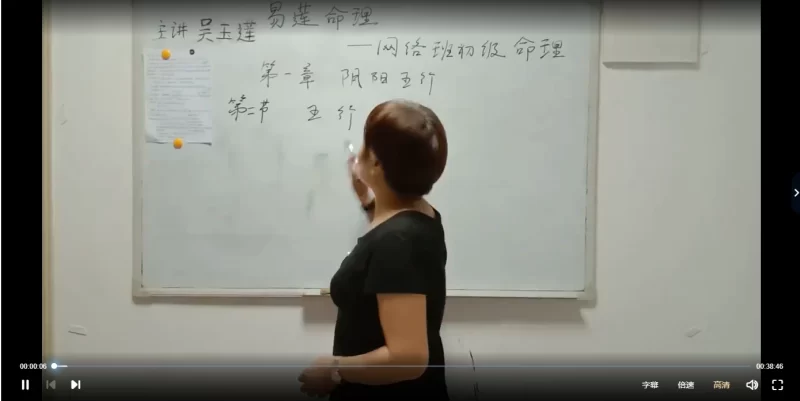 易莲命理
主讲 吴玉莲
—网络班初级 命理
第一章 阴阳五行
第二节 五行
00:00:06
00:38:46
字幕 倍速 高清